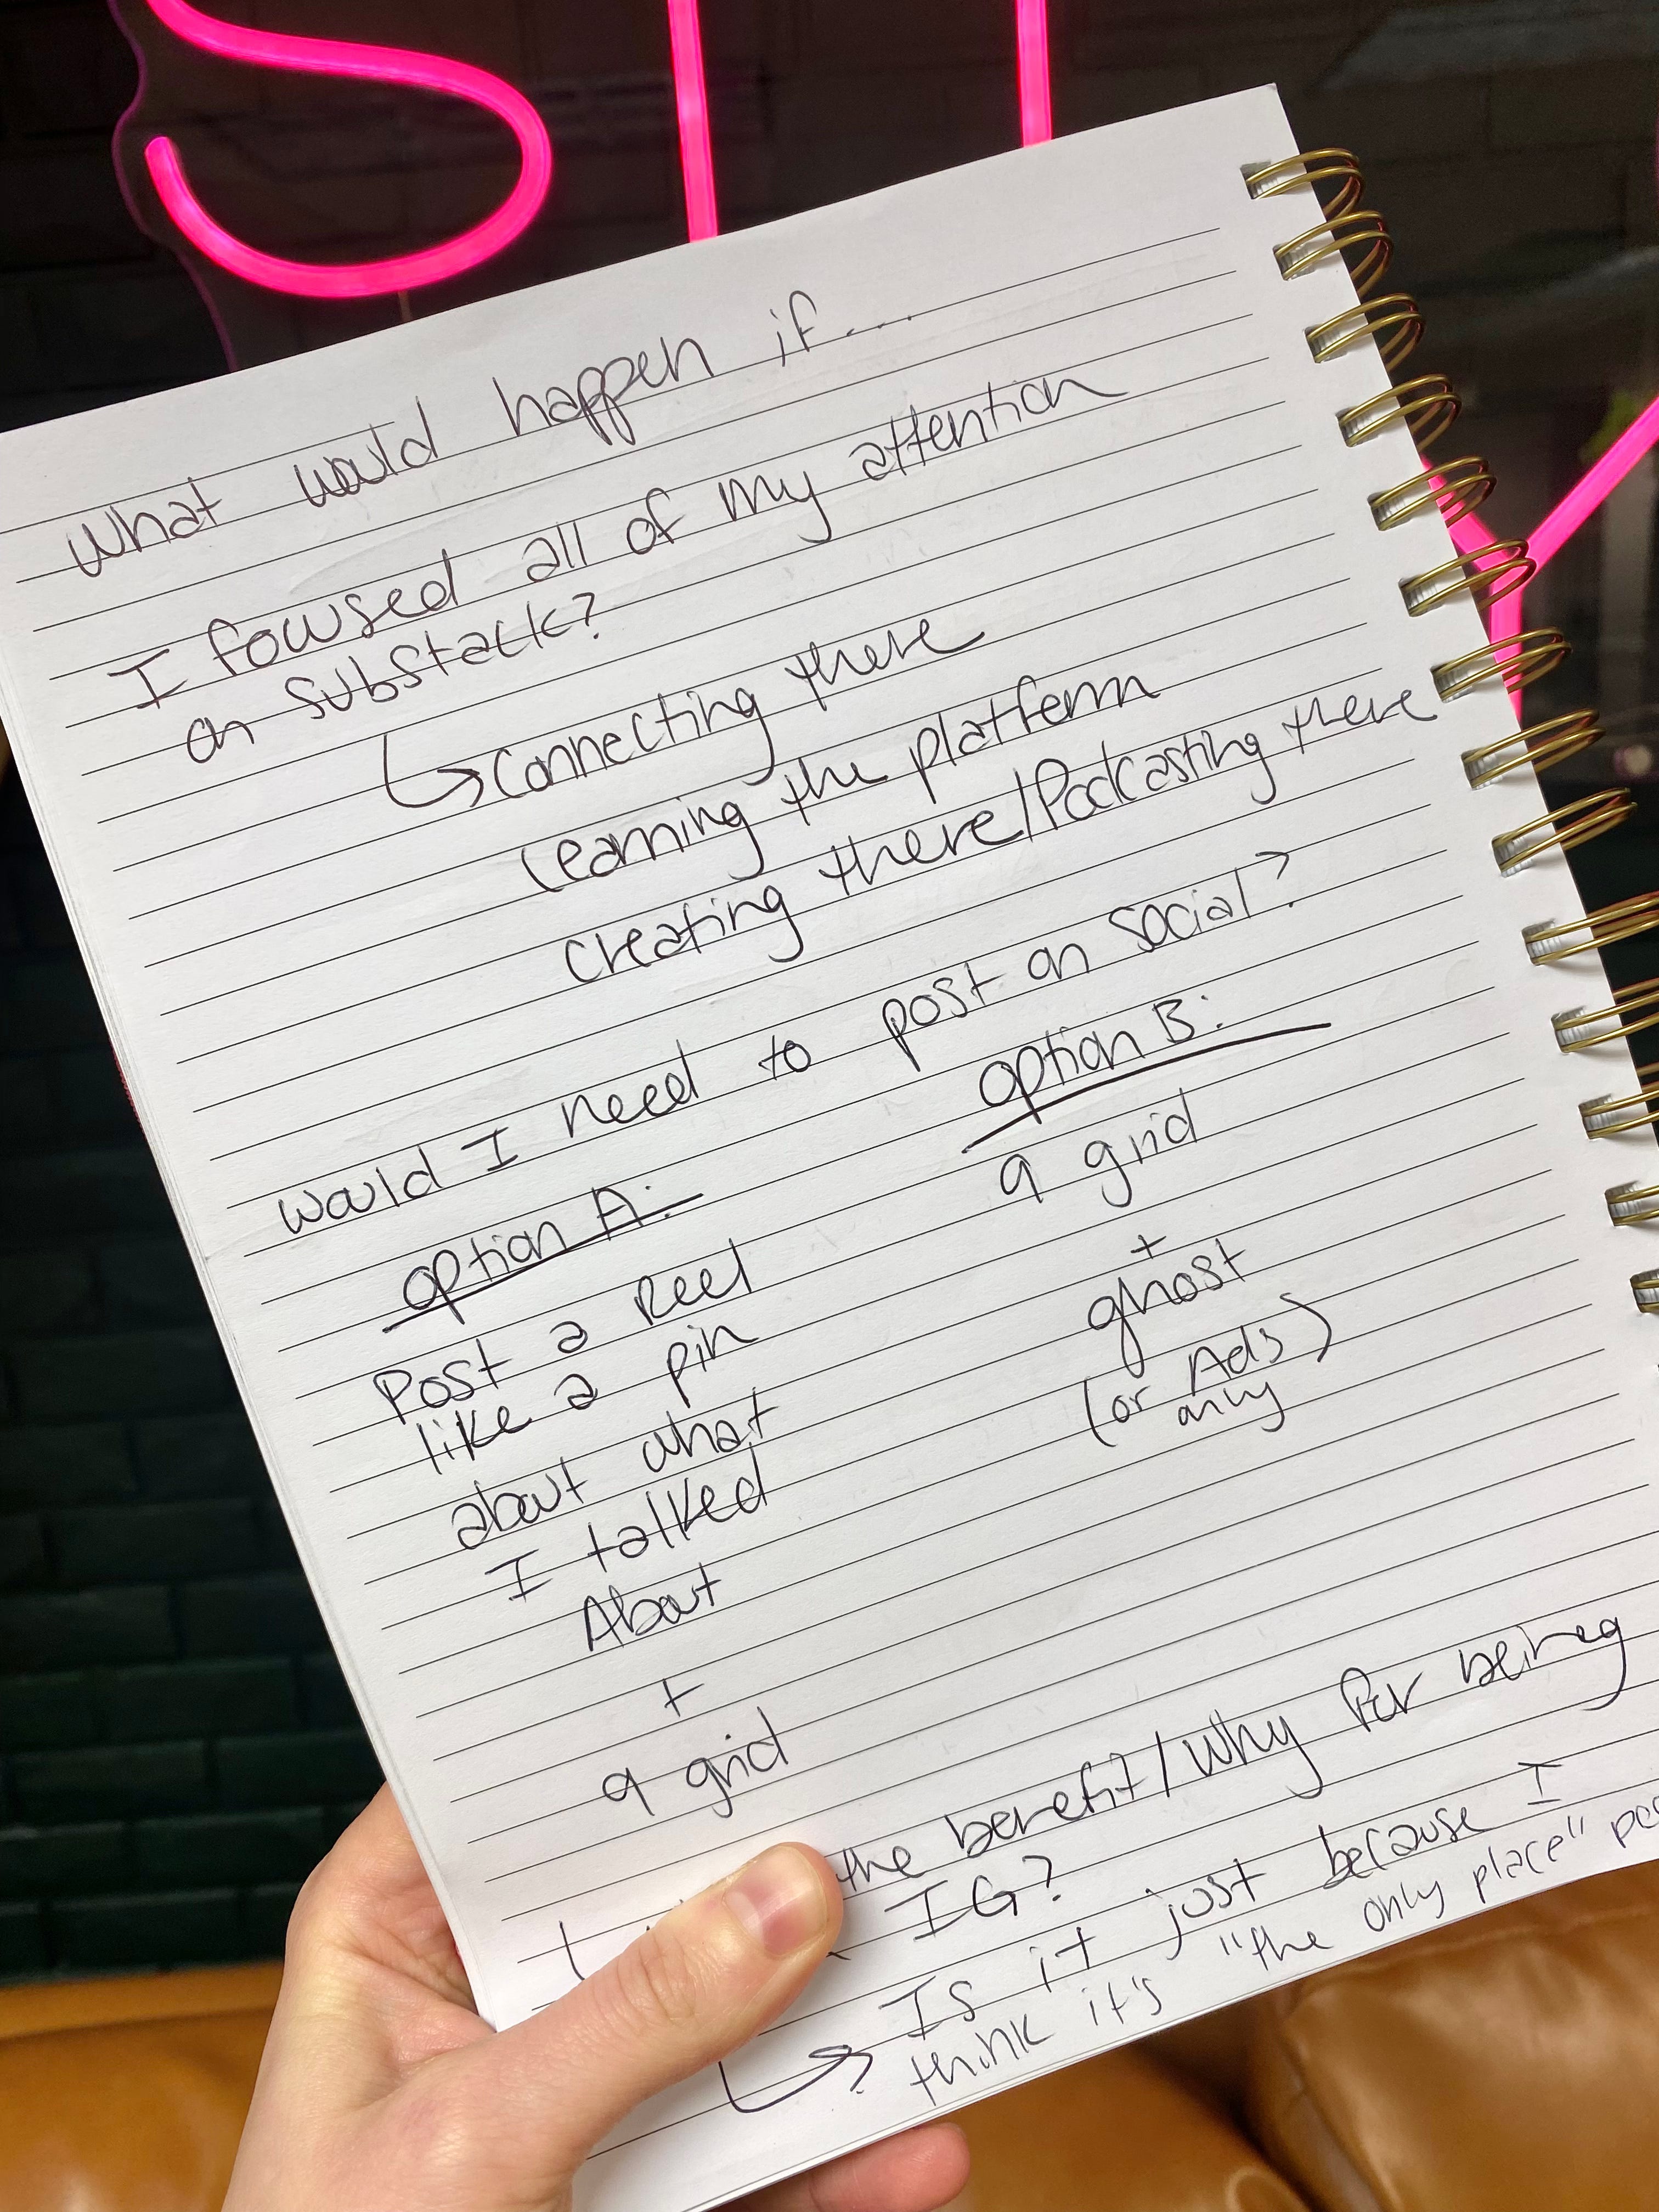 What would happen if...
I focused all of my attention
on substack?
↳ Connecting there
Learning the platform
Creating there/Podcasting there
Would I need to post on social?
option A:
Post a Reel
like a pin
about what
I talked
About
+
9 grid
option B:
9 grid
+
ghost
(or Ads
only)
the benefit/why for being
IG?
↳ Is it just because I
think it's "the only place"